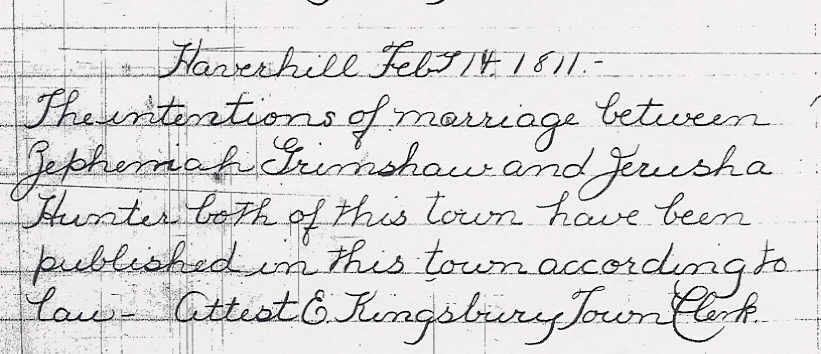 Haverhill Feby 14. 1811.-
The intentions of marriage between
Zephemiah Grimshaw and Jerusha
Hunter both of this town have been
published in this town according to
law- Attest E Kingsbury Town Clerk